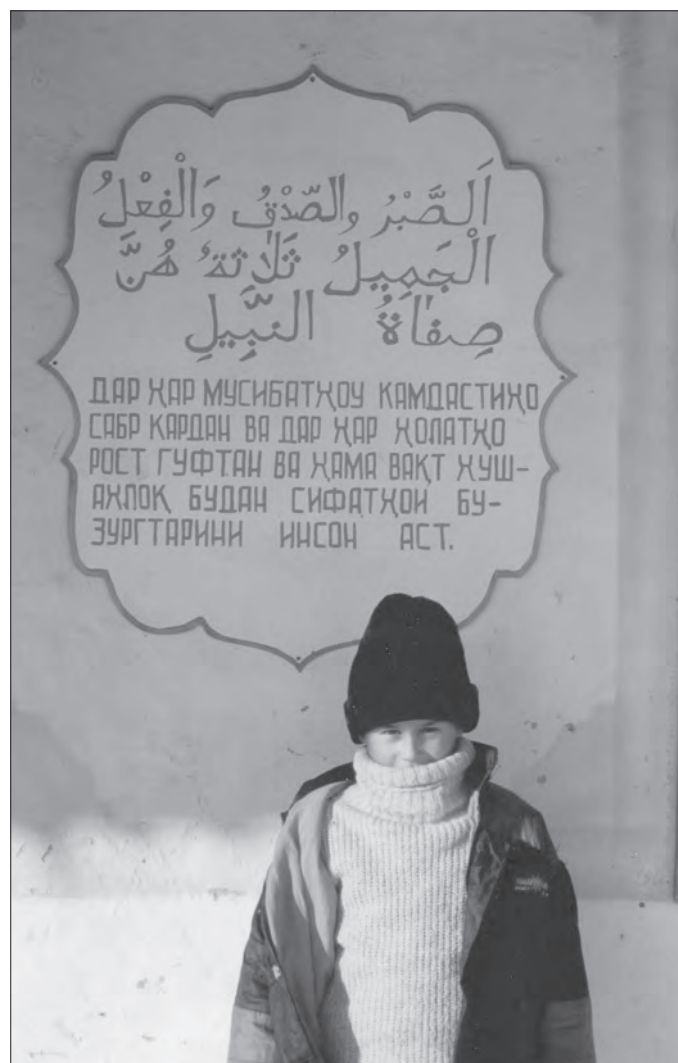 اَلصَّبْرُ والصِّدْقُ وَالْفِعْلُ
الْجَمِيلُ ثَلَاثَةٌ هُنَّ
صِفَاةُ النَّبِيلِ
ДАР ҲАР МУСИБАТҲОУ КАМДАСТИҲО
САБР КАРДАН ВА ДАР ҲАР ҲОЛАТҲО
РОСТ ГУФТАН ВА ҲАМА ВАҚТ ХУШ-
АХЛОҚ БУДАН СИФАТҲОИ БУ-
ЗУРГТАРИНИ ИНСОН АСТ.